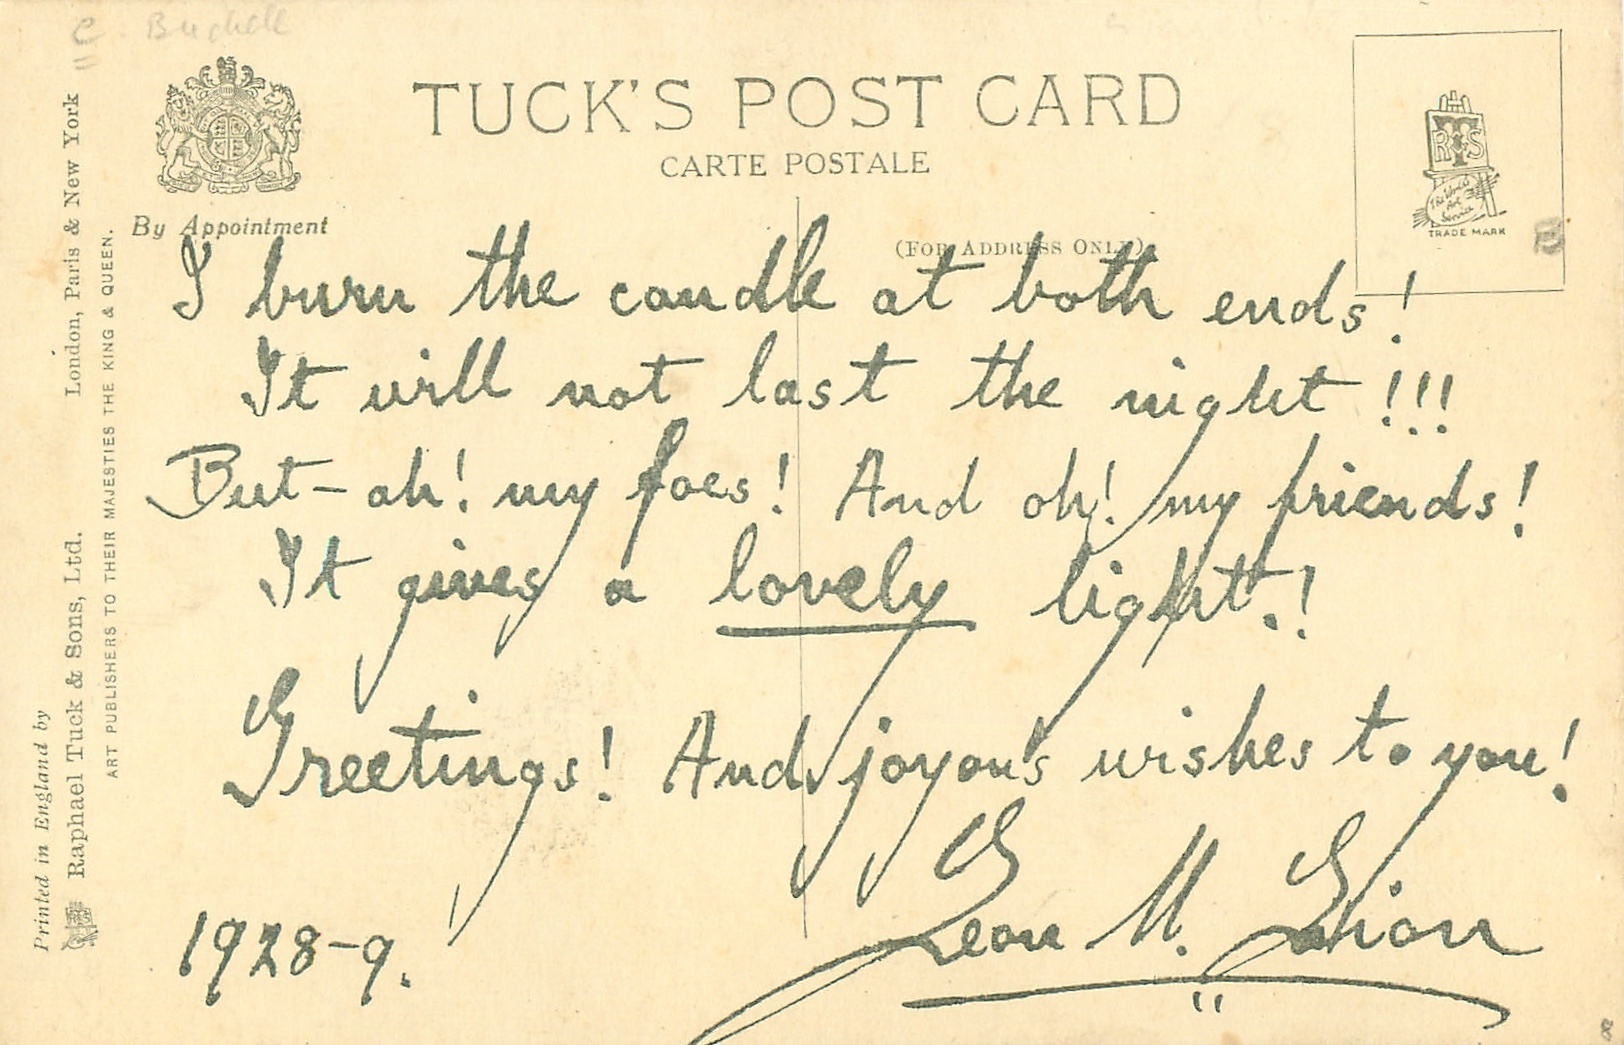 C. Buchel
TUCK'S POST CARD
CARTE POSTALE
By Appointment
(FOR ADDRESS ONLY)
RTS
The World's Art Service
TRADE MARK
B
I burn the candle at both ends!
It will not last the night!!!
But — ah! my foes! And oh! my friends!
It gives a lovely light.!
Greetings! And joyous wishes to you!
Leon M. Lion
1928-9.
Printed in England by
Raphael Tuck & Sons, Ltd. London, Paris & New York
ART PUBLISHERS TO THEIR MAJESTIES THE KING & QUEEN.
8